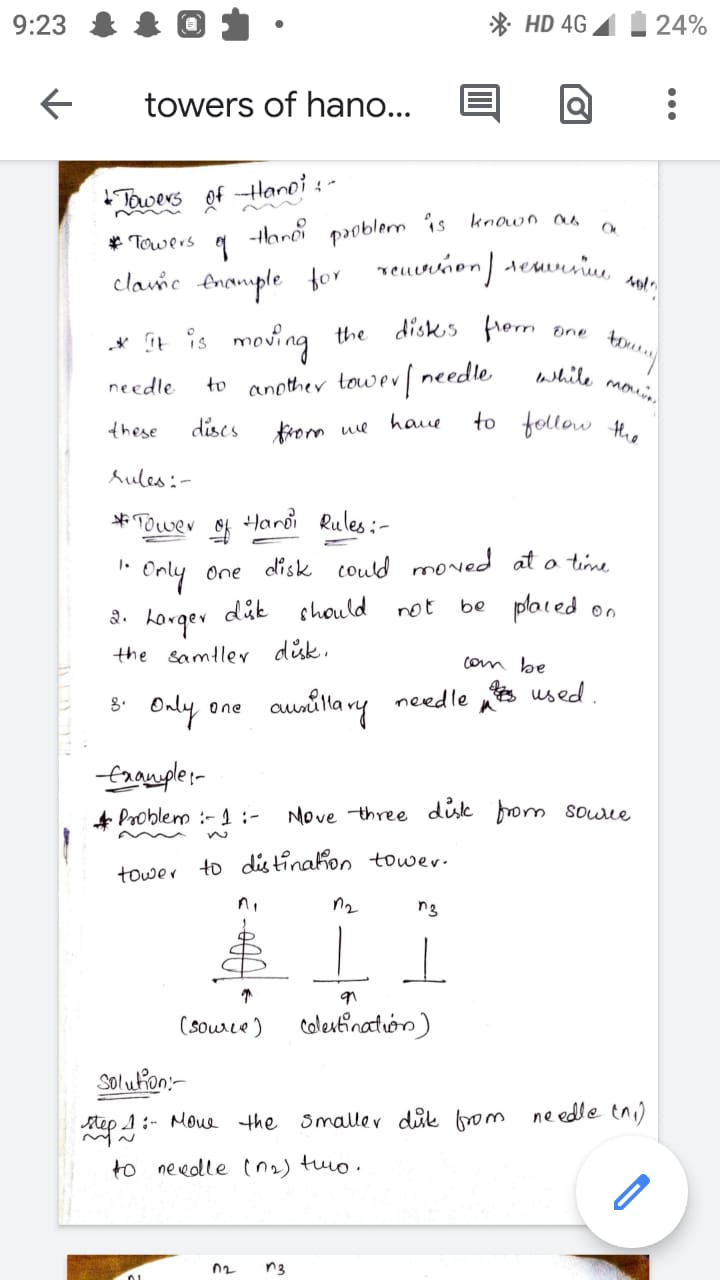 9:23 HD 4G 24%
towers of hano...
* Towers of Hanoi :-
* Towers of Hanoi problem is known as a
classic Example for recursion / recursive soln
* It is moving the disks from one tower/
needle to another tower/needle while moving
these discs from we have to follow the
rules:-
* Tower of Hanoi Rules:-
1. Only one disk could moved at a time
2. Larger disk should not be placed on
the samtler disk.
can be
3. Only one auxillary needle used.
Example:-
* Problem :- 1 :- Move three disk from source
tower to distination tower.
n1 n2 n3
(source) (destination)
Solution:-
step 1 :- Move the smaller disk from needle (n1)
to needle (n2) two.
n1 n2 n3